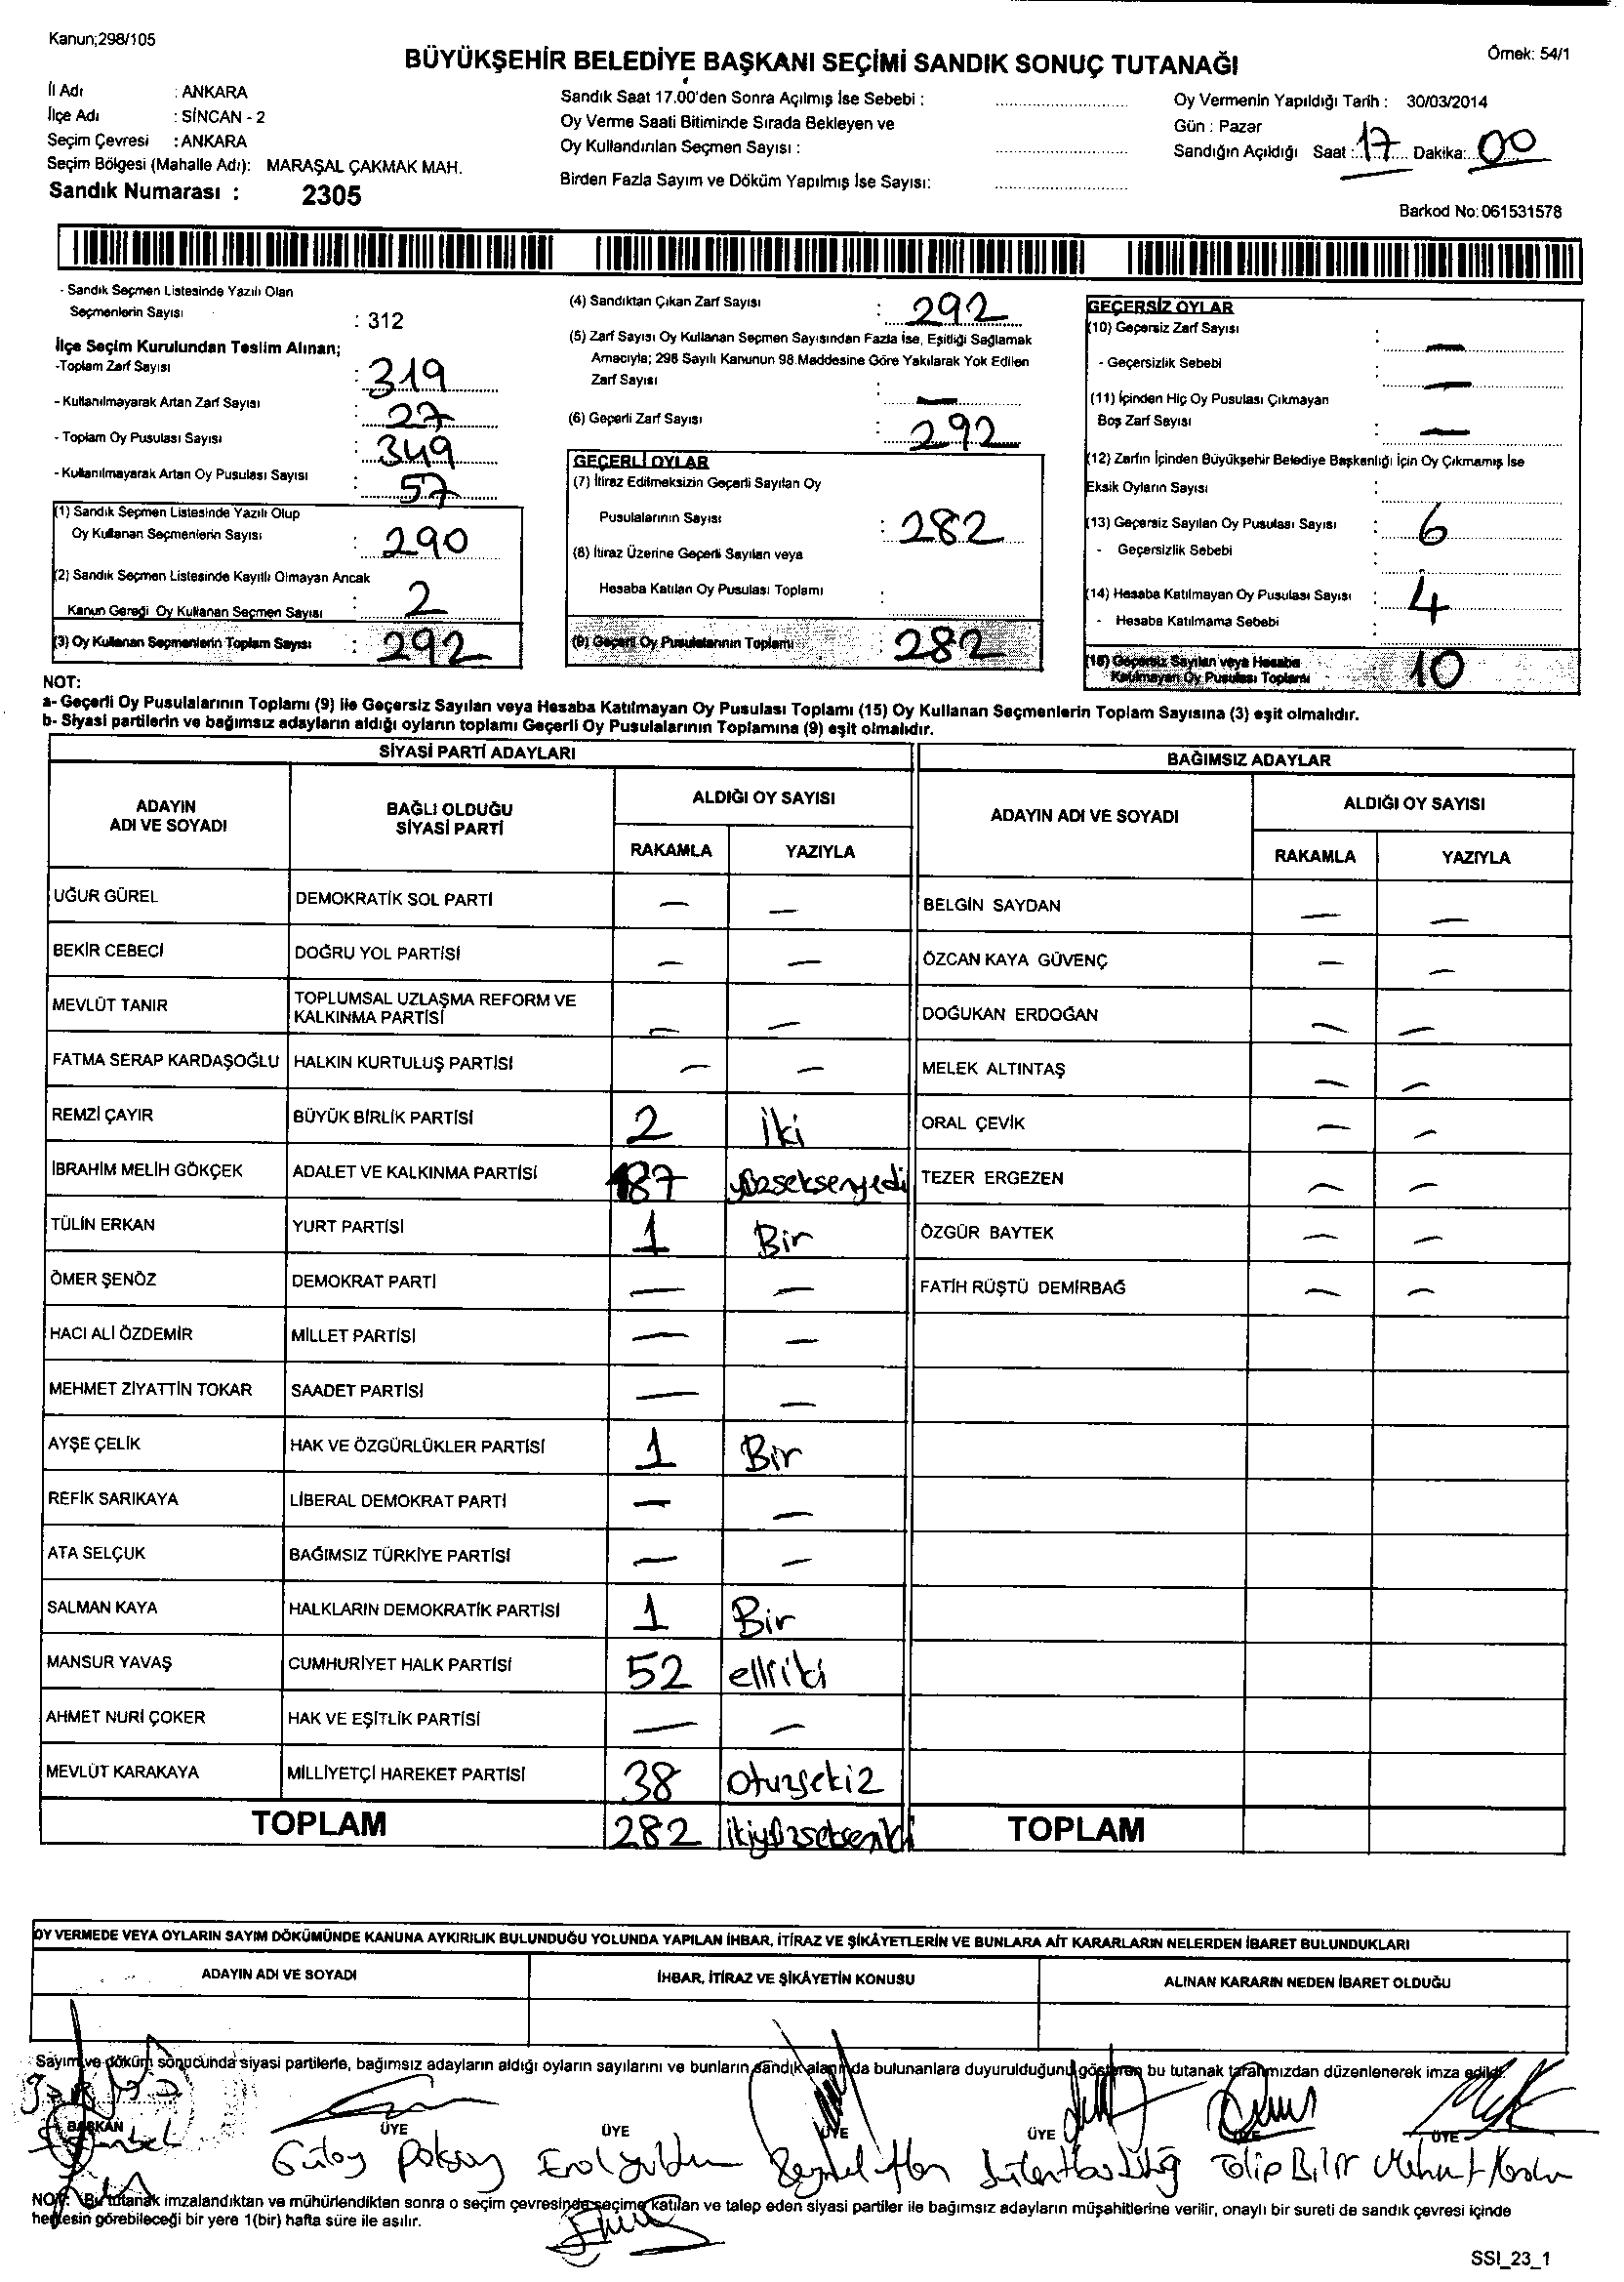 Kanun;298/105
BÜYÜKŞEHİR BELEDİYE BAŞKANI SEÇİMİ SANDIK SONUÇ TUTANAĞI
Örnek: 54/1
İl Adı : ANKARA
İlçe Adı : SİNCAN - 2
Seçim Çevresi : ANKARA
Seçim Bölgesi (Mahalle Adı): MARAŞAL ÇAKMAK MAH.
Sandık Numarası : 2305
Sandık Saat 17.00'den Sonra Açılmış İse Sebebi :
Oy Verme Saati Bitiminde Sırada Bekleyen ve
Oy Kullandırılan Seçmen Sayısı :
Birden Fazla Sayım ve Döküm Yapılmış İse Sayısı:
Oy Vermenin Yapıldığı Tarih : 30/03/2014
Gün : Pazar
Sandığın Açıldığı Saat : 17 Dakika: 00
Barkod No:061531578
- Sandık Seçmen Listesinde Yazılı Olan
Seçmenlerin Sayısı : 312
İlçe Seçim Kurulundan Teslim Alınan;
-Toplam Zarf Sayısı : 319
- Kullanılmayarak Artan Zarf Sayısı : 27
- Toplam Oy Pusulası Sayısı : 349
- Kullanılmayarak Artan Oy Pusulası Sayısı : 57
(1) Sandık Seçmen Listesinde Yazılı Olup
Oy Kullanan Seçmenlerin Sayısı : 290
(2) Sandık Seçmen Listesinde Kayıtlı Olmayan Ancak
Kanun Gereği Oy Kullanan Seçmen Sayısı : 2
(3) Oy Kullanan Seçmenlerin Toplam Sayısı : 292
(4) Sandıktan Çıkan Zarf Sayısı : 292
(5) Zarf Sayısı Oy Kullanan Seçmen Sayısından Fazla İse, Eşitliği Sağlamak
Amacıyla; 298 Sayılı Kanunun 98.Maddesine Göre Yakılarak Yok Edilen
Zarf Sayısı : —
(6) Geçerli Zarf Sayısı : 292
GEÇERLİ OYLAR
(7) İtiraz Edilmeksizin Geçerli Sayılan Oy
Pusulalarının Sayısı : 282
(8) İtiraz Üzerine Geçerli Sayılan veya
Hesaba Katılan Oy Pusulası Toplamı :
(9) Geçerli Oy Pusulalarının Toplamı : 282
GEÇERSİZ OYLAR
(10) Geçersiz Zarf Sayısı : —
- Geçersizlik Sebebi : —
(11) İçinden Hiç Oy Pusulası Çıkmayan
Boş Zarf Sayısı : —
(12) Zarfın İçinden Büyükşehir Belediye Başkanlığı İçin Oy Çıkmamış İse
Eksik Oyların Sayısı :
(13) Geçersiz Sayılan Oy Pusulası Sayısı : 6
- Geçersizlik Sebebi :
(14) Hesaba Katılmayan Oy Pusulası Sayısı : 4
- Hesaba Katılmama Sebebi :
(15) Geçersiz Sayılan veya Hesaba
Katılmayan Oy Pusulası Toplamı : 10
NOT:
a- Geçerli Oy Pusulalarının Toplamı (9) ile Geçersiz Sayılan veya Hesaba Katılmayan Oy Pusulası Toplamı (15) Oy Kullanan Seçmenlerin Toplam Sayısına (3) eşit olmalıdır.
b- Siyasi partilerin ve bağımsız adayların aldığı oyların toplamı Geçerli Oy Pusulalarının Toplamına (9) eşit olmalıdır.
SİYASİ PARTİ ADAYLARI
ADAYIN ADI VE SOYADI BAĞLI OLDUĞU SİYASİ PARTİ ALDIĞI OY SAYISI
RAKAMLA YAZIYLA
UĞUR GÜREL DEMOKRATİK SOL PARTİ — —
BEKİR CEBECİ DOĞRU YOL PARTİSİ — —
MEVLÜT TANIR TOPLUMSAL UZLAŞMA REFORM VE KALKINMA PARTİSİ — —
FATMA SERAP KARDAŞOĞLU HALKIN KURTULUŞ PARTİSİ — —
REMZİ ÇAYIR BÜYÜK BİRLİK PARTİSİ 2 iki
İBRAHİM MELİH GÖKÇEK ADALET VE KALKINMA PARTİSİ 187 yüzseksenyedi
TÜLİN ERKAN YURT PARTİSİ 1 Bir
ÖMER ŞENÖZ DEMOKRAT PARTİ — —
HACI ALİ ÖZDEMİR MİLLET PARTİSİ — —
MEHMET ZİYATTİN TOKAR SAADET PARTİSİ — —
AYŞE ÇELİK HAK VE ÖZGÜRLÜKLER PARTİSİ 1 Bir
REFİK SARIKAYA LİBERAL DEMOKRAT PARTİ — —
ATA SELÇUK BAĞIMSIZ TÜRKİYE PARTİSİ — —
SALMAN KAYA HALKLARIN DEMOKRATİK PARTİSİ 1 Bir
MANSUR YAVAŞ CUMHURİYET HALK PARTİSİ 52 elliiki
AHMET NURİ ÇOKER HAK VE EŞİTLİK PARTİSİ — —
MEVLÜT KARAKAYA MİLLİYETÇİ HAREKET PARTİSİ 38 otuzsekiz
TOPLAM 282 ikiyüzsekseniki
BAĞIMSIZ ADAYLAR
ADAYIN ADI VE SOYADI ALDIĞI OY SAYISI
RAKAMLA YAZIYLA
BELGİN SAYDAN — —
ÖZCAN KAYA GÜVENÇ — —
DOĞUKAN ERDOĞAN — —
MELEK ALTINTAŞ — —
ORAL ÇEVİK — —
TEZER ERGEZEN — —
ÖZGÜR BAYTEK — —
FATİH RÜŞTÜ DEMİRBAĞ — —
TOPLAM
OY VERMEDE VEYA OYLARIN SAYIM DÖKÜMÜNDE KANUNA AYKIRILIK BULUNDUĞU YOLUNDA YAPILAN İHBAR, İTİRAZ VE ŞİKÂYETLERİN VE BUNLARA AİT KARARLARIN NELERDEN İBARET BULUNDUKLARI
ADAYIN ADI VE SOYADI İHBAR, İTİRAZ VE ŞİKÂYETİN KONUSU ALINAN KARARIN NEDEN İBARET OLDUĞU
Sayım ve döküm sonucunda siyasi partilerle, bağımsız adayların aldığı oyların sayılarını ve bunların sandık alanında bulunanlara duyurulduğunu gösteren bu tutanak tarafımızdan düzenlenerek imza edildi.
BAŞKAN ÜYE ÜYE ÜYE ÜYE ÜYE ÜYE
NOT: Bu tutanak imzalandıktan ve mühürlendikten sonra o seçim çevresinde seçime katılan ve talep eden siyasi partiler ile bağımsız adayların müşahitlerine verilir, onaylı bir sureti de sandık çevresi içinde
herkesin görebileceği bir yere 1(bir) hafta süre ile asılır.
SSI_23_1